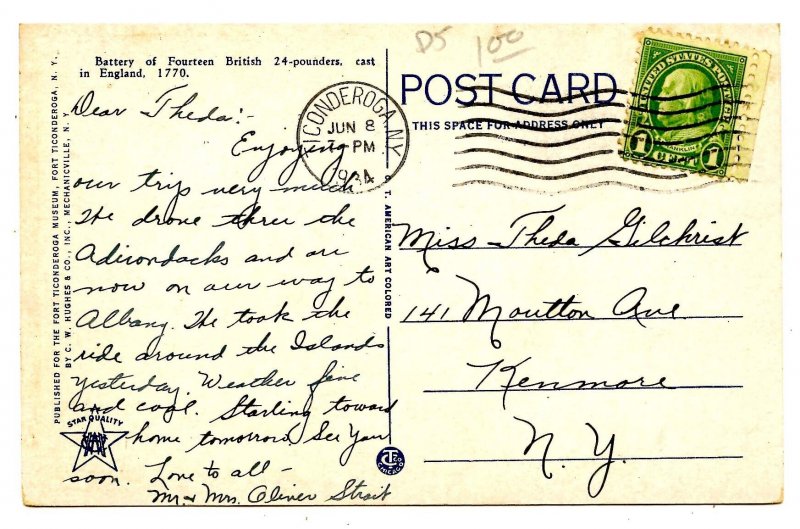 D5 1.00
Battery of Fourteen British 24-pounders, cast
in England, 1770.
POST CARD
THIS SPACE FOR ADDRESS ONLY
TICONDEROGA, N.Y.
JUN 8
PM
1934
UNITED STATES POSTAGE
FRANKLIN
1 CENT 1
Dear Theda:-
Enjoying
our trip very much.
We drove three the
Adirondacks and are
now on our way to
Albany. We took the
ride around the Islands
yesterday. Weather fine
and cool. Starting toward
home tomorrow. See You
soon. Love to all -
Mr & Mrs. Oliver Strait
Miss Theda Gilchrist
141 Moulton Ave
Kenmore
N.Y.
PUBLISHED FOR THE FORT TICONDEROGA MUSEUM, FORT TICONDEROGA, N. Y.,
BY C. W. HUGHES & CO., INC., MECHANICVILLE, N. Y.
C. T. AMERICAN ART COLORED
STAR QUALITY
CHICAGO